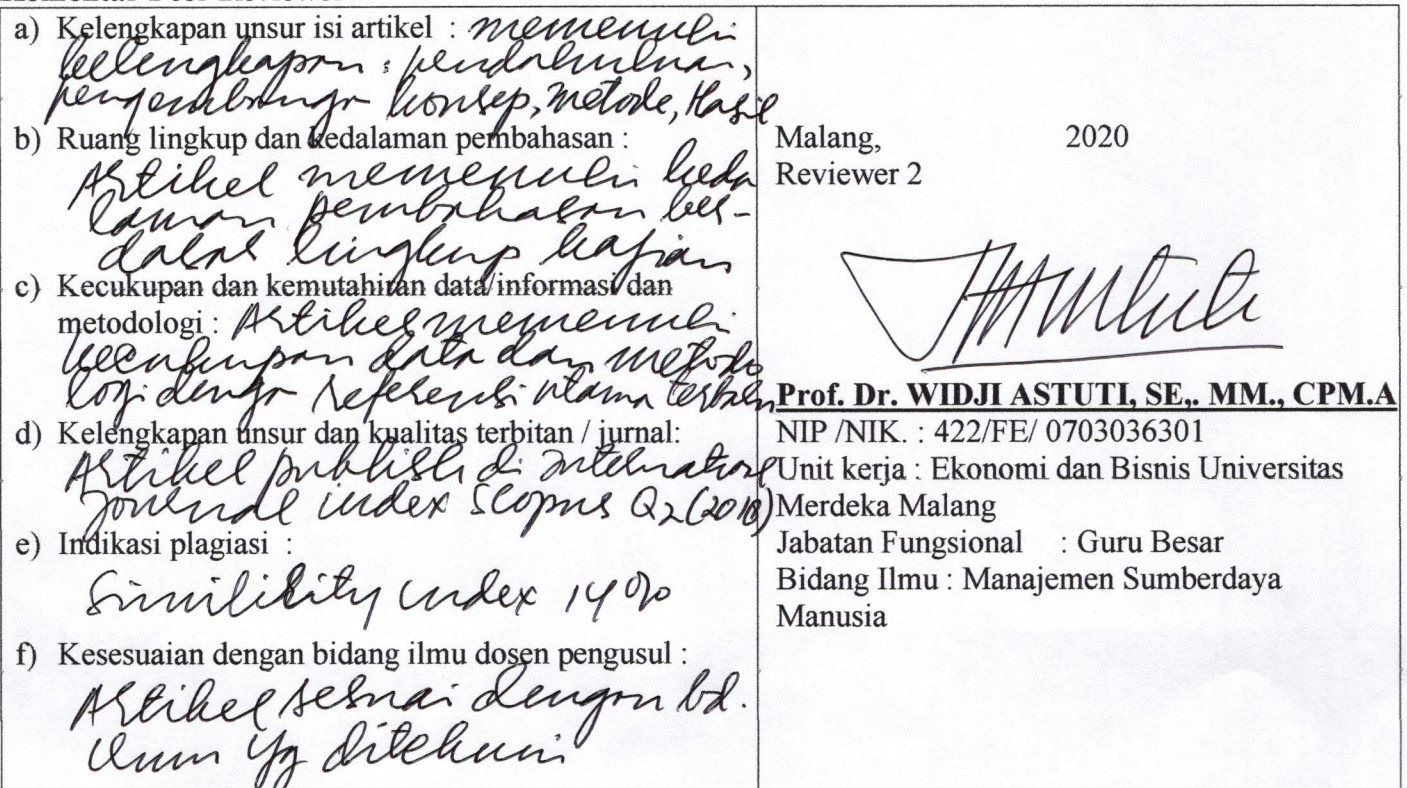 a) Kelengkapan unsur isi artikel : memenuhi
kelengkapan : pendahuluan,
pengembangan konsep, metode, Hasil
b) Ruang lingkup dan kedalaman pembahasan :
Artikel memenuhi keda
laman pembahasan ber-
dasar lingkup kajian
c) Kecukupan dan kemutahiran data/informasi dan
metodologi : Artikel memenuhi
kecukupan data dan metodo
logi dengan referensi utama terbaru
d) Kelengkapan unsur dan kualitas terbitan / jurnal:
Artikel publish di International
Journal index Scopus Q2 (2018)
e) Indikasi plagiasi :
Similirity index 14%
f) Kesesuaian dengan bidang ilmu dosen pengusul :
Artikel sesuai dengan bd.
ilmu yg ditekuni
Malang, 2020
Reviewer 2
Prof. Dr. WIDJI ASTUTI, SE,. MM., CPM.A
NIP /NIK. : 422/FE/ 0703036301
Unit kerja : Ekonomi dan Bisnis Universitas
Merdeka Malang
Jabatan Fungsional : Guru Besar
Bidang Ilmu : Manajemen Sumberdaya
Manusia